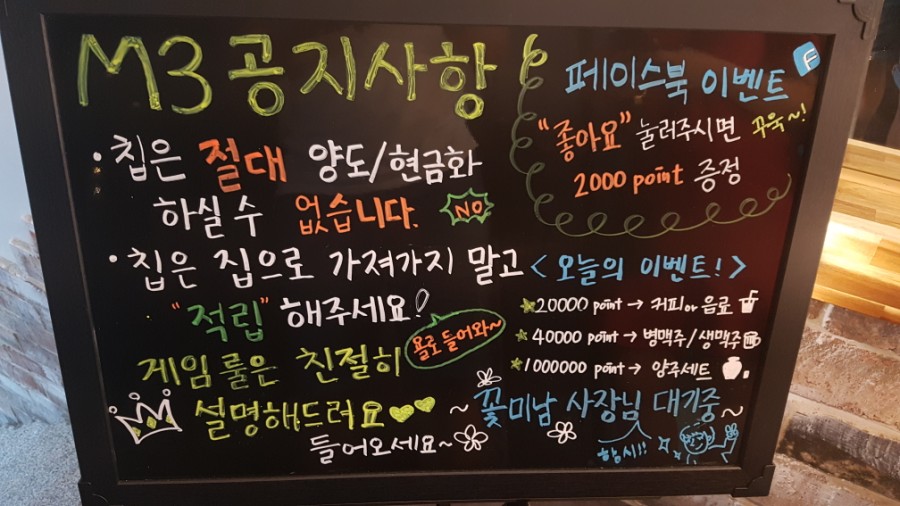 M3 공지사항
• 칩은 절대 양도/현금화
하실 수 없습니다. NO
• 칩은 집으로 가져가지 말고
"적립" 해주세요!
욜로 들어와~
게임 룰은 친절히
설명해드려요
들어오세요~
페이스북 이벤트 F
"좋아요" 눌러주시면 꾸욱~!
2000 point 증정
<오늘의 이벤트!>
20000 point → 커피or 음료
40000 point → 병맥주/생맥주
1000000 point → 양주세트
~ 꽃미남 사장님 대기중~
항시!!